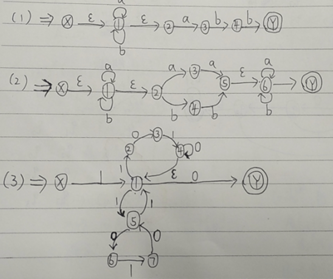 (1) ⇒ X ε 1 a b ε 2 a 3 b 4 b Y
(2) ⇒ X ε 1 a b ε 2 a 3 a b 4 b 5 ε 6 a b Y
(3) ⇒ X 1 1 0 Y
1 2 0 3 1 4 0 ε
1 5 1
0 6 1 7 0